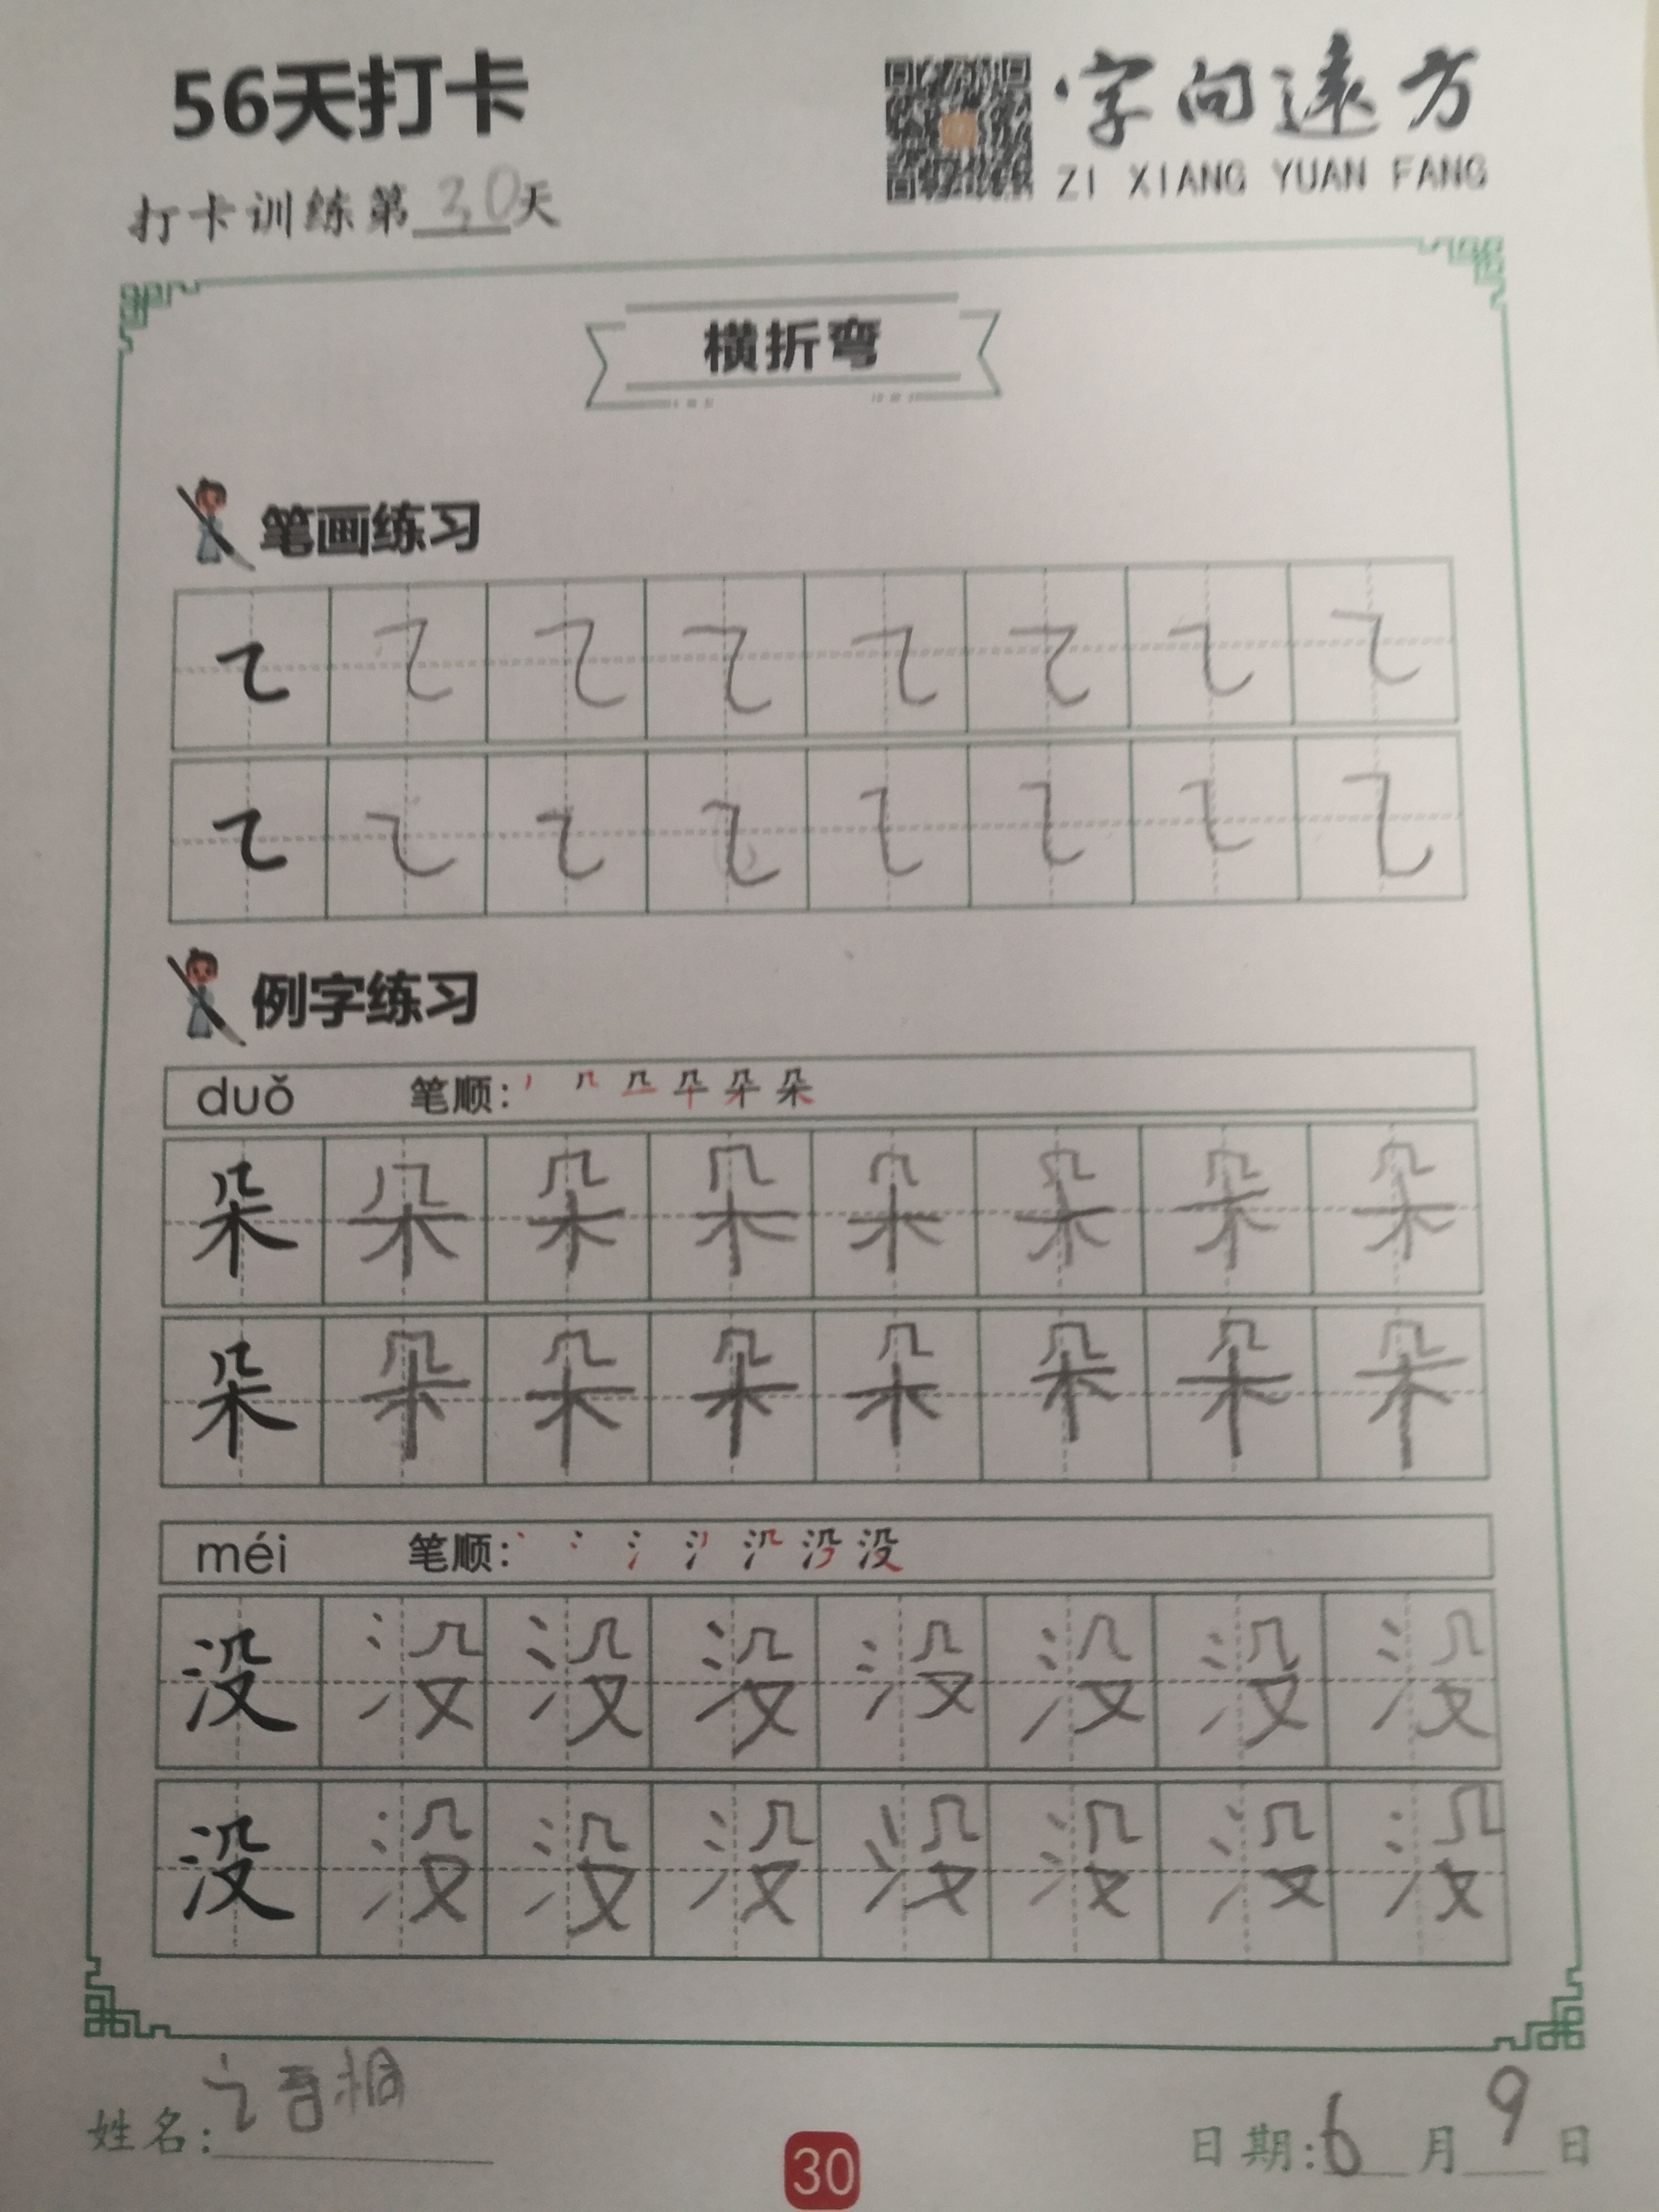 56天打卡
·字向遠方
ZI XIANG YUAN FANG
打卡训练第30天
横折弯
笔画练习
例字练习
duǒ 笔顺:
朵 朵 朵 朵 朵 朵 朵 朵
朵 朵 朵 朵 朵 朵 朵 朵
méi 笔顺: 没
没 没 没 没 没 没 没 没
没 没 没 没 没 没 没 没
姓名:
日期:6月9日
30